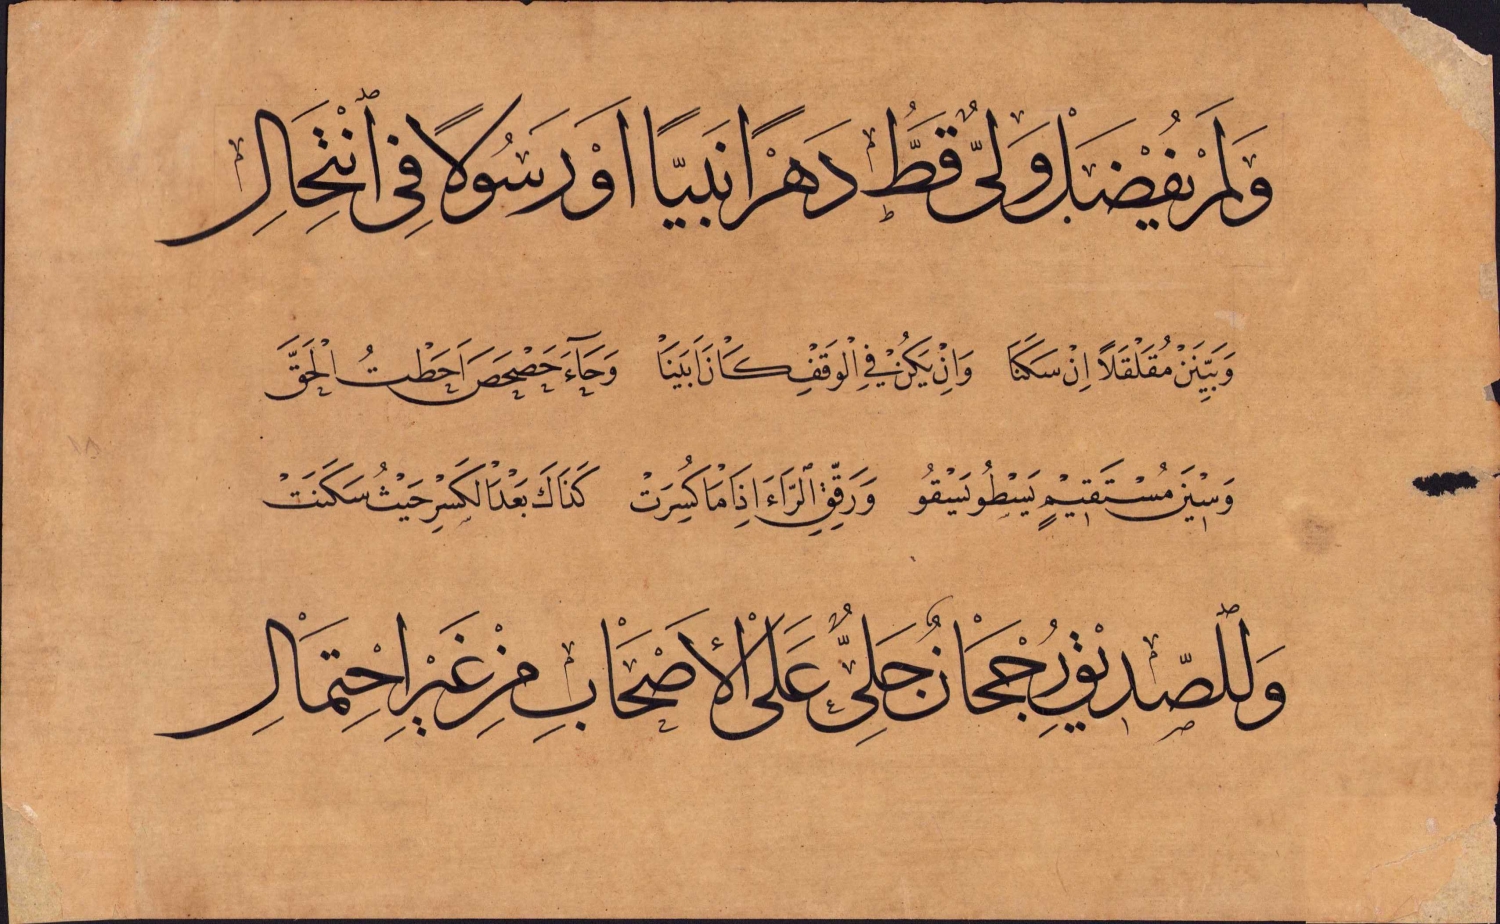 وَلَمْ يَفْضُلْ وَلِيٌّ قَطُّ دَهْرًا نَبِيًّا اَوْ رَسُولًا فِى ٱنْتِحَالِ
وَبَيِّنَنْ مُقَلْقَلًا اِنْ سَكَنَا وَاِنْ يَكُنْ فِى الْوَقْفِ كَانَ اَبْيَنَا وَحَآءَ حَصْحَصَ اَحَطْتُ الْحَقَّ
وَسِينَ مُسْتَقِيمِ يَسْطُو يَسْقُو وَرَقِّقِ ٱلرَّاءَ اِذَا مَا كُسِرَتْ كَذَاكَ بَعْدَ الْكَسْرِ حَيْثُ سَكَنَتْ
وَلِلصِّدِّيقِ رُجْحَانٌ جَلِيٌّ عَلَى الْأَصْحَابِ مِنْ غَيْرِ احْتِمَالِ